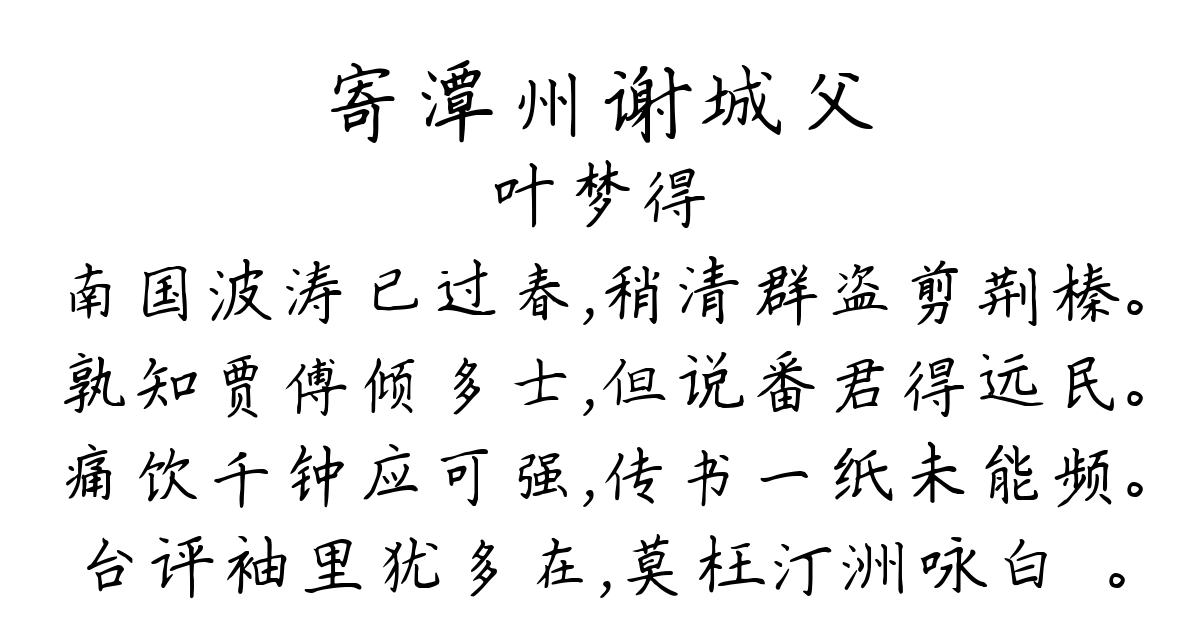 寄潭州谢城父
叶梦得
南国波涛已过春,稍清群盗剪荆榛。
孰知贾傅倾多士,但说番君得远民。
痛饮千钟应可强,传书一纸未能频。
台评袖里犹多在,莫枉汀洲咏白 。